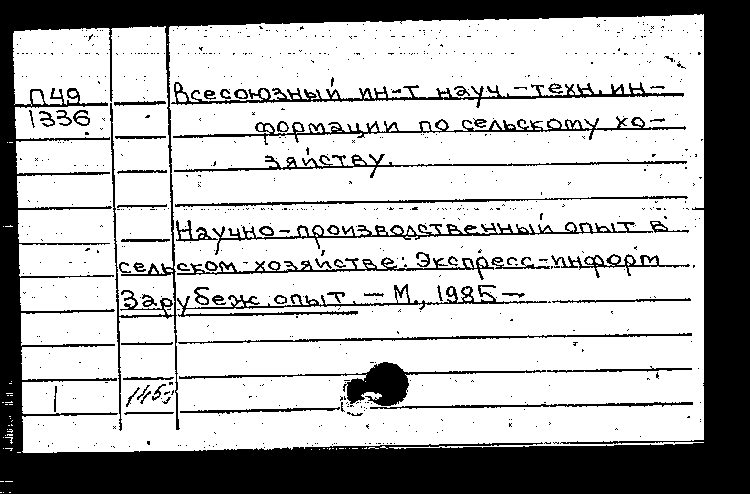 П49
1336
Всесоюзный ин-т науч.-техн. ин-
формации по сельскому хо-
зяйству.
Научно-производственный опыт в
сельском хозяйстве: Экспресс-информ
Зарубеж. опыт. — М., 1985 —
1